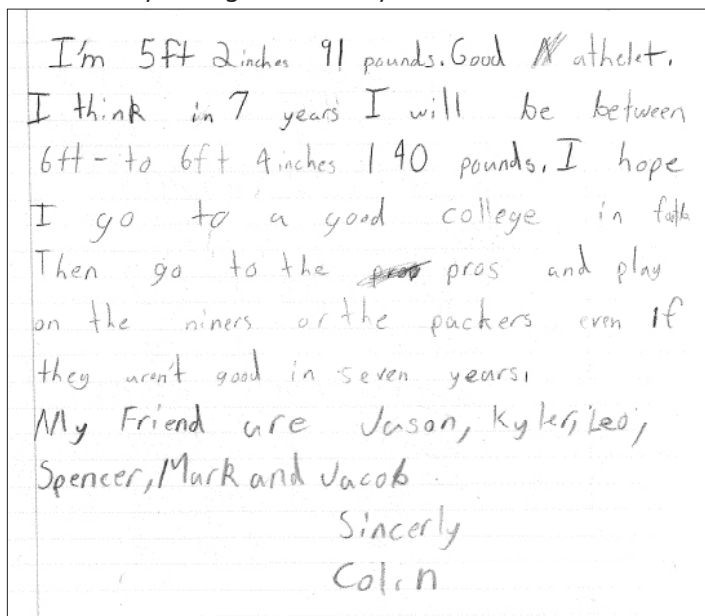 I'm 5ft 2inches 91 pounds. Good athelet.
I think in 7 years I will be between
6ft - to 6ft 4inches 140 pounds. I hope
I go to a good college in
Then go to the pros and play
on the niners or the packers even if
they aren't good in seven years.
My Friend are Jason, Kyler, Leo,
Spencer, Mark and Jacob.
Sincerly
Colin